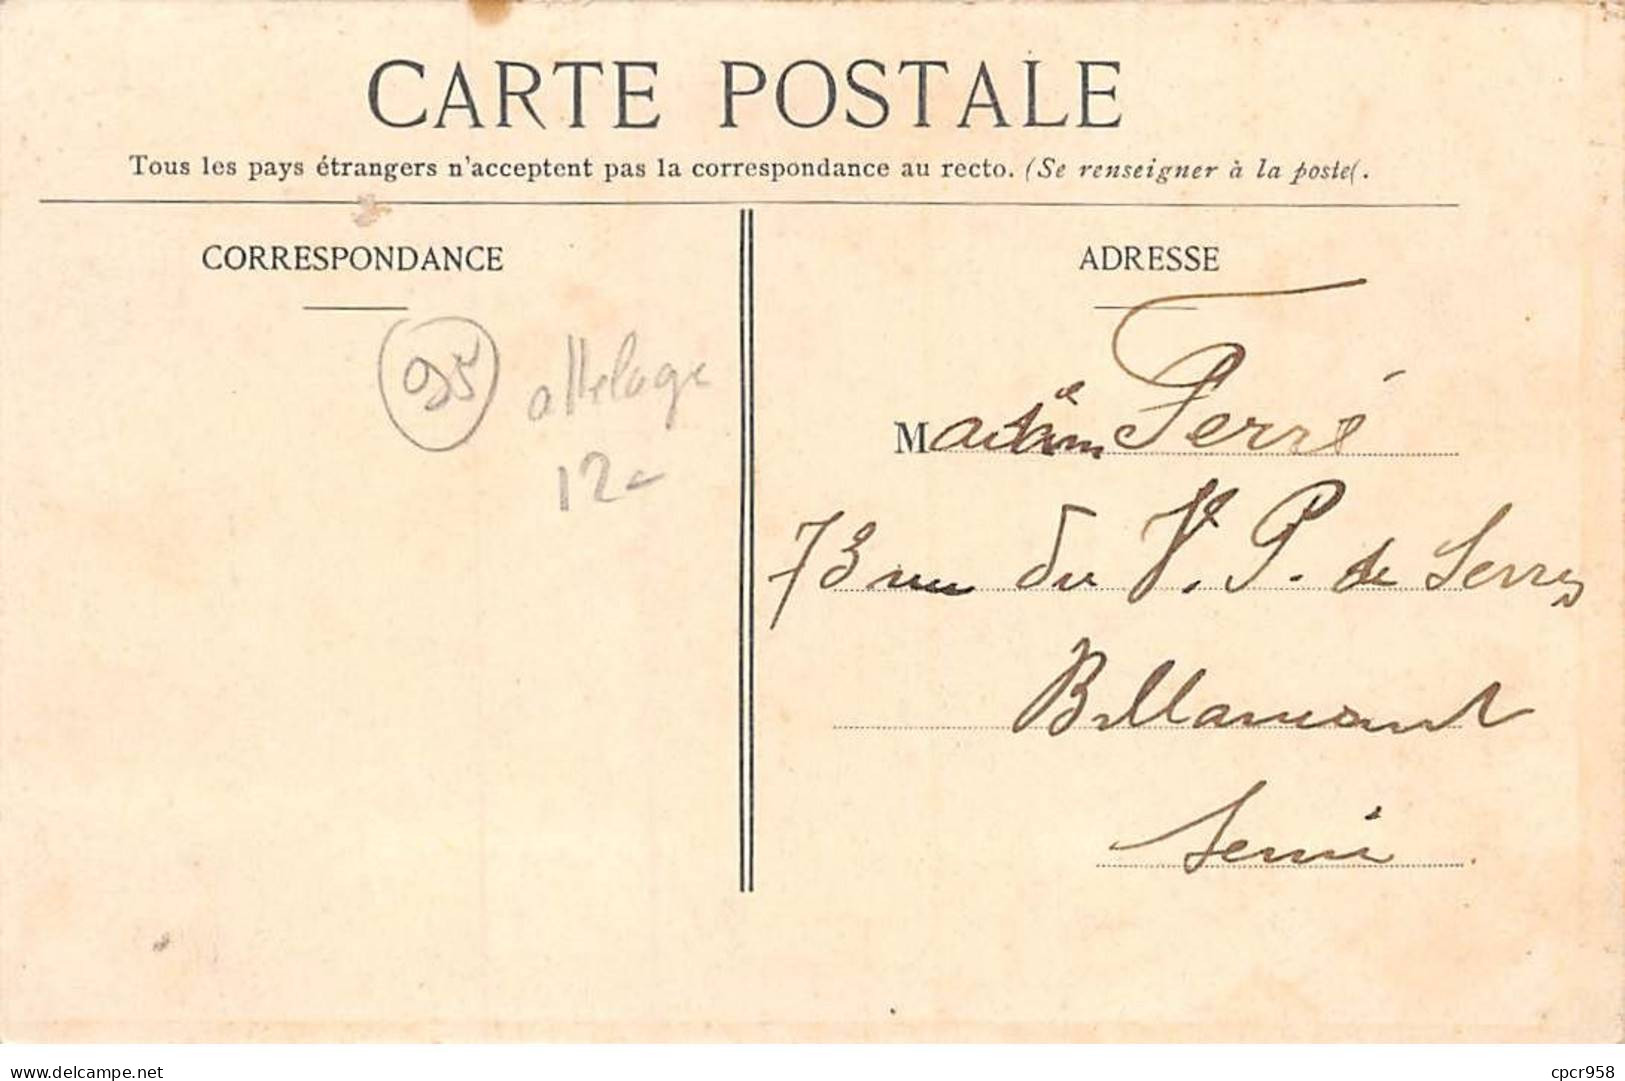 CARTE POSTALE
Tous les pays étrangers n'acceptent pas la correspondance au recto. (Se renseigner à la poste(.
CORRESPONDANCE
ADRESSE
95
attelage
12
M Ferré
73 rue du V. P. de Serres
Billancourt
Seine
www.delcampe.net
cpcr958